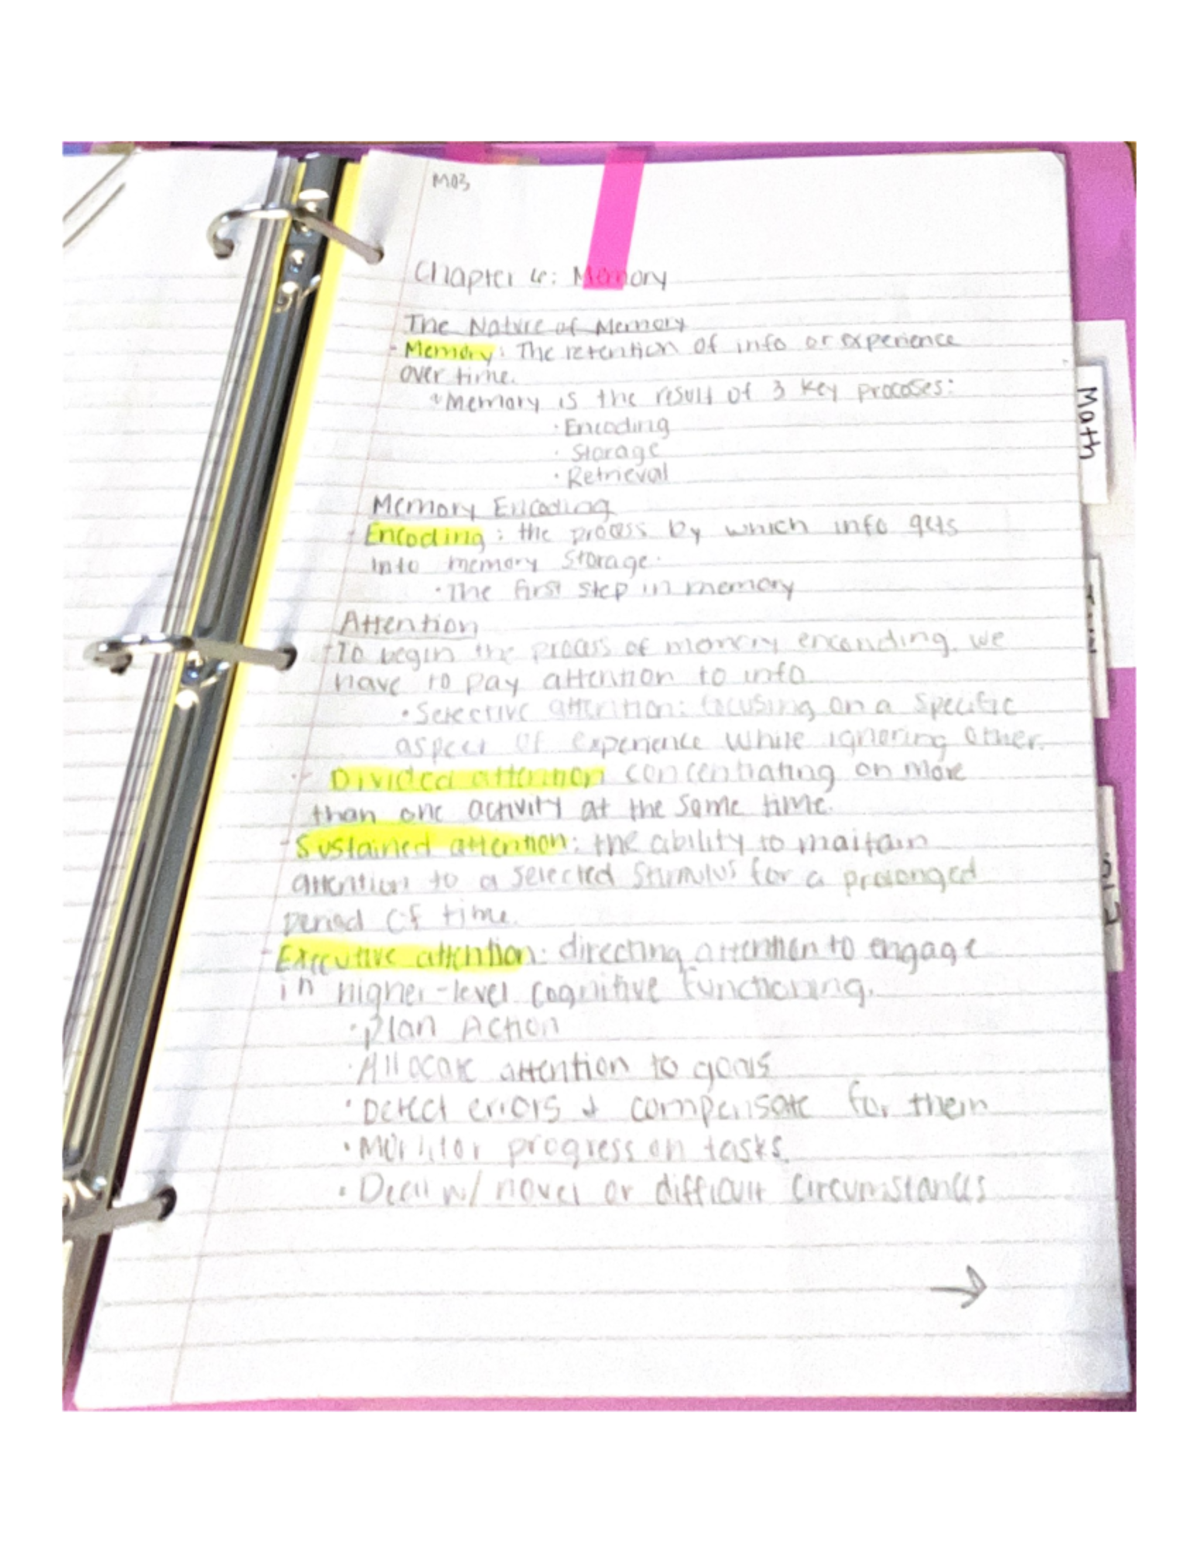 M03
Chapter 6: Memory
The Nature of Memory
- Memory: The retention of info or experience
over time.
*Memory is the result of 3 key proceses:
· Encoding
· Storage
· Retrieval
Memory Encoding
- Encoding: the process by which info gets
into memory storage.
· The first step in memory
Attention
- To begin the process of memory enconding, we
have to pay attention to info
· Selective attention: focusing on a specific
aspect of experience while ignoring other.
- Divided attention concentrating on more
than one activity at the same time.
- Sustained attention: the ability to maitain
attention to a selected stimulus for a prolonged
period of time.
- Executive attention: directing attention to engage
in higher-level cognitive functioning.
· Plan Action
· Allocate attention to goals
· Detect errors & compensate for them
· Monitor progress on tasks.
· Deal w/ novel or difficult circumstances
→
Math